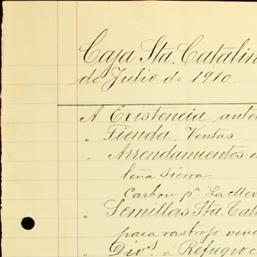 Caja Sta. Catalin
de Julio de 1910.
A Existencia ante
" Tienda. Ventas
" Arrendamientos
leña sierra
Carbon pª La Mex
" Semillas Sta. Cat
para rastrojo ven
" Divs. á Refugio